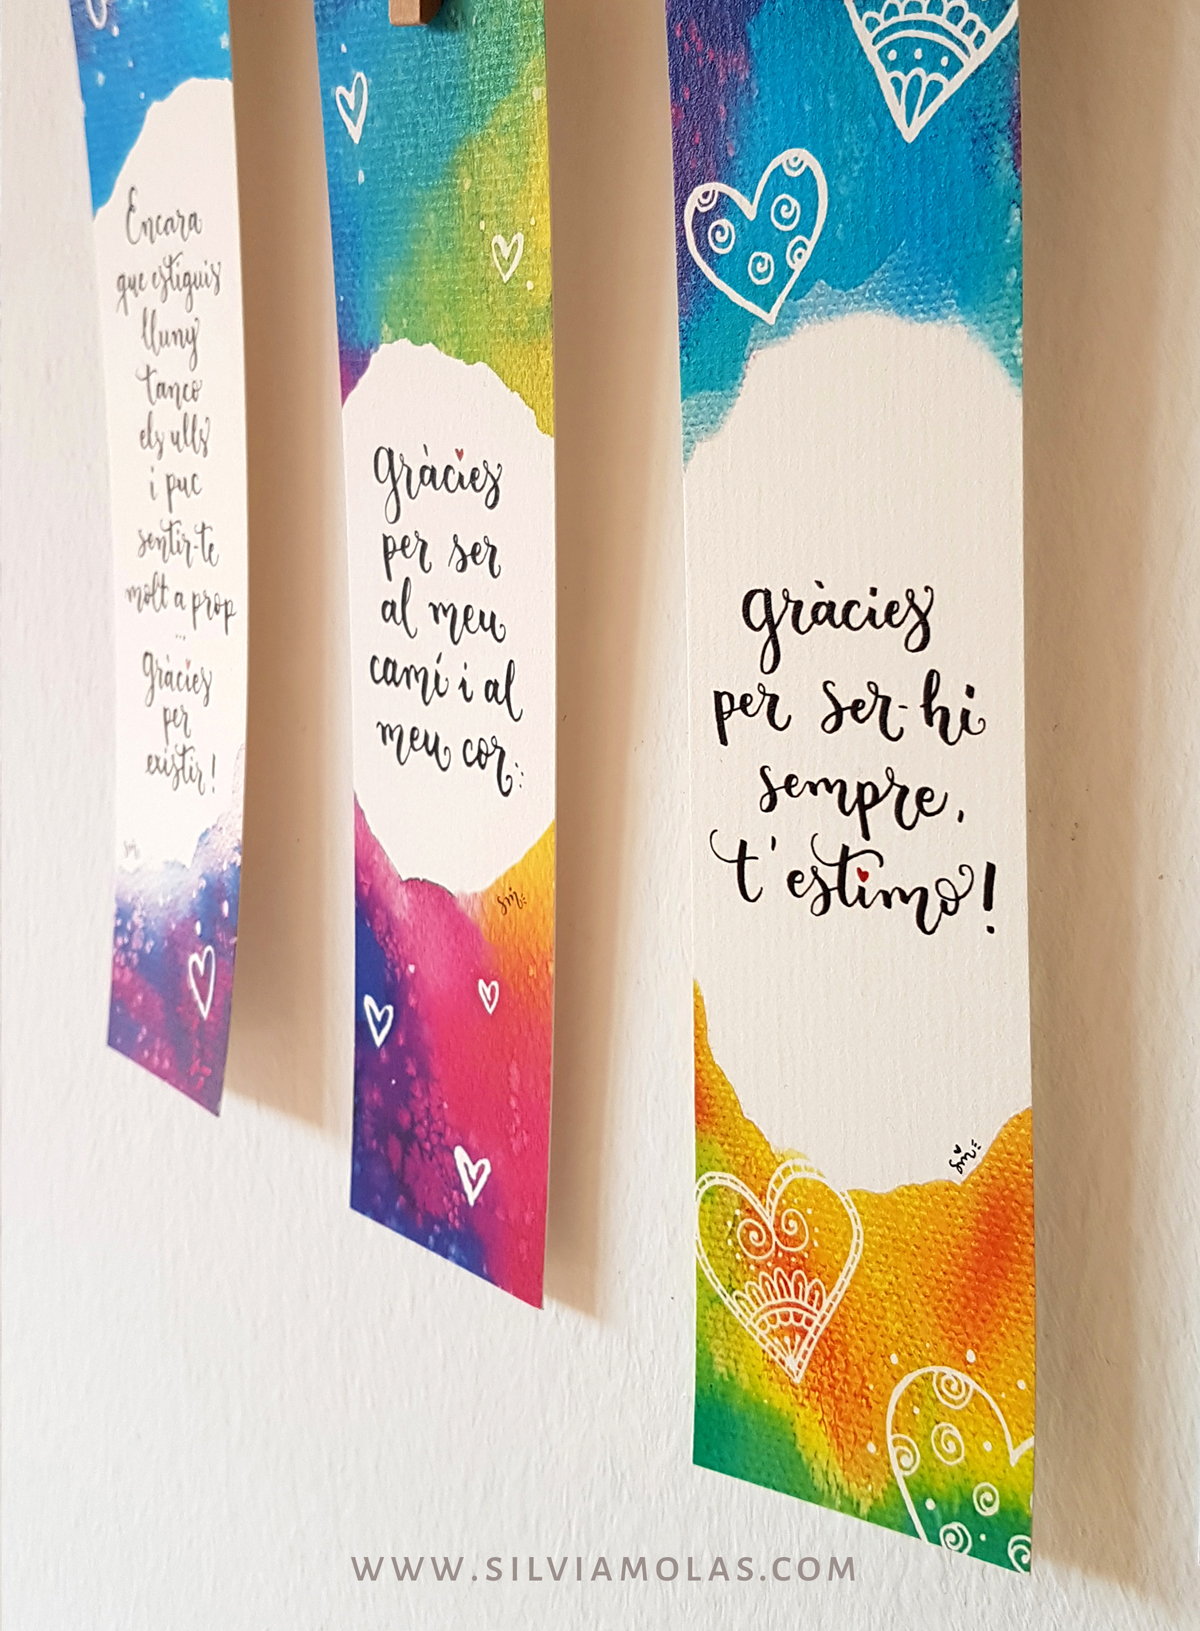 Encara
que estiguis
lluny
tanco
els ulls
i puc
sentir-te
molt a prop
...
gràcies
per
existir!
sm
gràcies
per ser
al meu
camí i al
meu cor
sm
gràcies
per ser-hi
sempre,
t'estimo!
sm
WWW.SILVIAMOLAS.COM